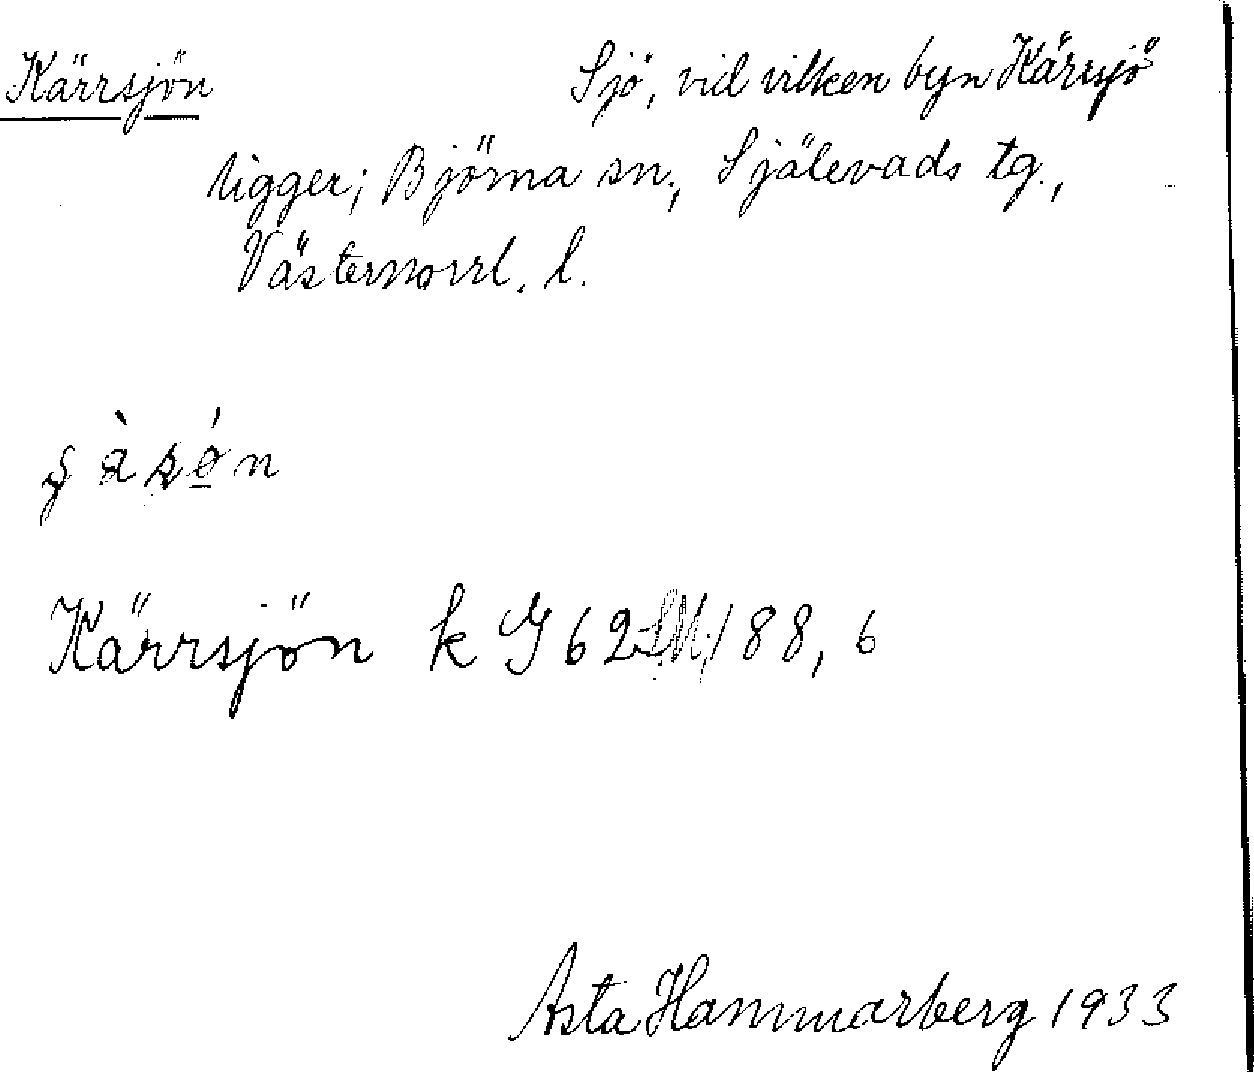 Kärrsjön Sjö, vid vilken byn Kärrsjö
ligger; Björna sn., Själevads tg.,
Västernorrl. l.
Kärrsjön k J 62 188, 6
Asta Hammarberg 1933